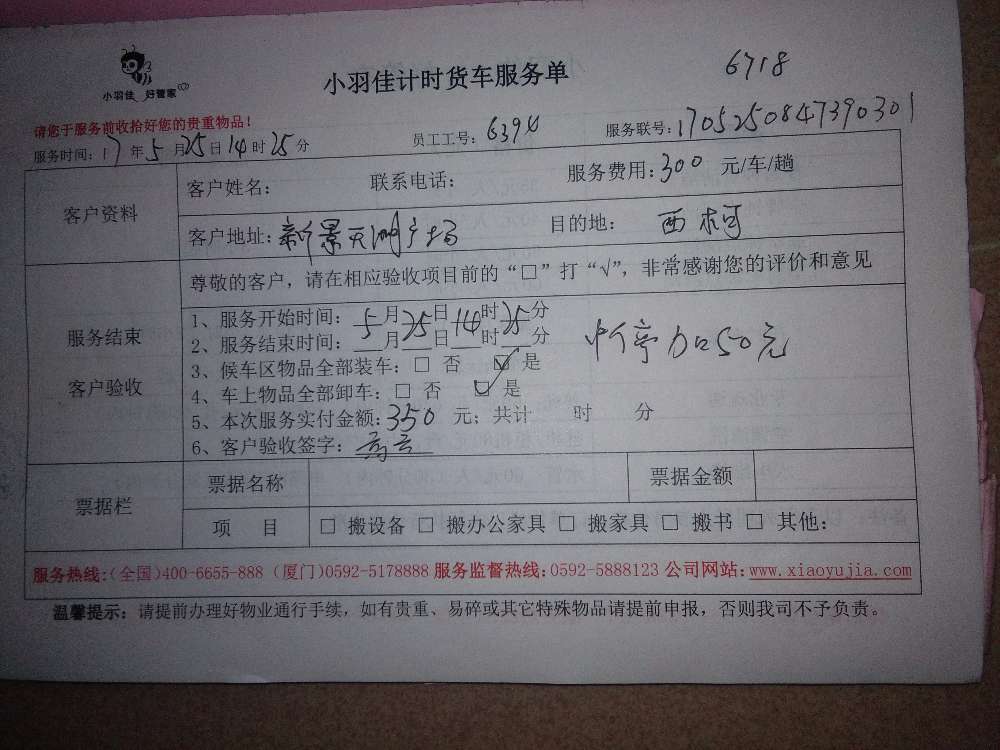 小羽佳 好管家
小羽佳计时货车服务单
6718
请您于服务前收拾好您的贵重物品！
服务时间：17年5月25日14时25分 员工工号：6394 服务联号：1705250847390301
客户资料
客户姓名： 联系电话： 服务费用：300 元/车/趟
客户地址：新景天湖广场 目的地： 西柯
服务结束
客户验收
尊敬的客户，请在相应验收项目前的“□”打“√”，非常感谢您的评价和意见
1、服务开始时间：5月25日14时25分
2、服务结束时间：__月__日__时__分
3、候车区物品全部装车：□ 否 ☑ 是
4、车上物品全部卸车：□ 否 ☑ 是
5、本次服务实付金额：350 元；共计 时 分
6、客户验收签字：
加50元
票据栏
票据名称 票据金额
项 目 □ 搬设备 □ 搬办公家具 □ 搬家具 □ 搬书 □ 其他：
服务热线：(全国)400-6655-888 (厦门)0592-5178888 服务监督热线：0592-5888123 公司网站：www.xiaoyujia.com
温馨提示：请提前办理好物业通行手续，如有贵重、易碎或其它特殊物品请提前申报，否则我司不予负责。